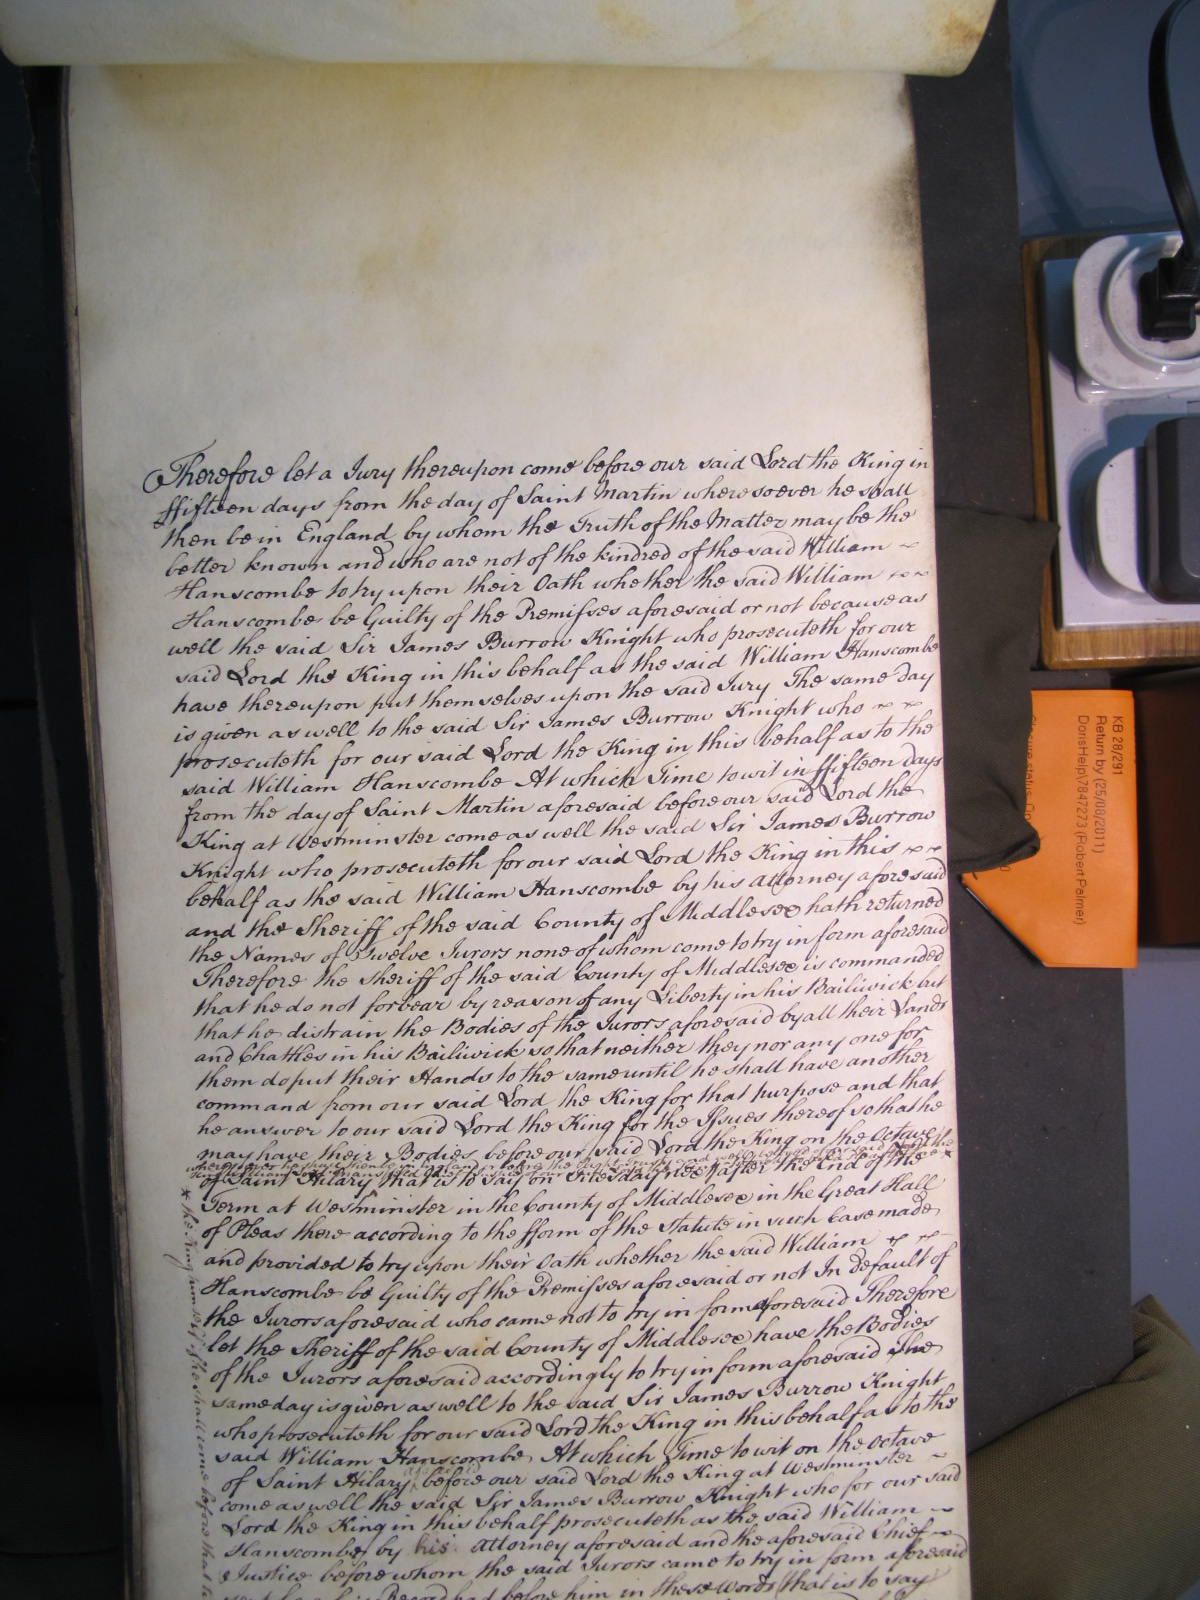 Therefore let a Jury thereupon come before our said Lord the King in
ffifteen days from the day of Saint Martin wheresoever he shall
then be in England by whom the Truth of the Matter may be the
better known and who are not of the kindred of the said William ~
Hanscombe to try upon their Oath whether the said William ~ ~
Hanscombe be Guilty of the Premisses aforesaid or not because as
well the said Sir James Burrow Knight who prosecuteth for our
said Lord the King in this behalf as the said William Hanscombe
have thereupon put themselves upon the said Jury The same day
is given as well to the said Sir James Burrow Knight who ~ ~
prosecuteth for our said Lord the King in this behalf as to the
said William Hanscombe At which Time to wit in ffifteen days
from the day of Saint Martin aforesaid before our said Lord the
King at Westminster come as well the said Sir James Burrow
Knight who prosecuteth for our said Lord the King in this ~ ~
behalf as the said William Hanscombe by his Attorney aforesaid
and the Sheriff of the said County of Middlesex hath returned
the Names of Twelve Jurors none of whom come to try in form aforesaid
Therefore the Sheriff of the said County of Middlesex is commanded
that he do not forbear by reason of any Liberty in his Bailiwick but
that he distrain the Bodies of the Jurors aforesaid by all their Lands
and Chattles in his Bailiwick so that neither they nor any one for
them do put their Hands to the same until he shall have another
command from our said Lord the King for that purpose and that
he answer to our said Lord the King for the Issues thereof so that he
may have their Bodies before our said Lord the King on the Octave
wheresoever he shall then be in England or before the Right
of Saint Hilary that is to say on Tuesday next after the End of the
Term at Westminster in the County of Middlesex in the Great Hall
of Pleas there according to the fform of the Statute in such Case made
and provided to try upon their Oath whether the said William ~ ~
Hanscombe be Guilty of the Premisses aforesaid or not In default of
the Jurors aforesaid who came not to try in form aforesaid Therefore
let the Sheriff of the said County of Middlesex have the Bodies
of the Jurors aforesaid accordingly to try in form aforesaid The
same day is given as well to the said Sir James Burrow Knight
who prosecuteth for our said Lord the King in this behalf as to the
said William Hanscombe At which Time to wit on the Octave
of Saint Hilary aforesaid before our said Lord the King at Westminster
come as well the said Sir James Burrow Knight who for our said
Lord the King in this behalf prosecuteth as the said William ~
Hanscombe by his Attorney aforesaid and the aforesaid Chief ~
Justice before whom the said Jurors came to try in form aforesaid
Record had before him in these Words that is to say
* the King himself if he shall come before that
KB 28/291
Return by (25/08/2011)
DorisHelp\7847273 (Robert Palmer)